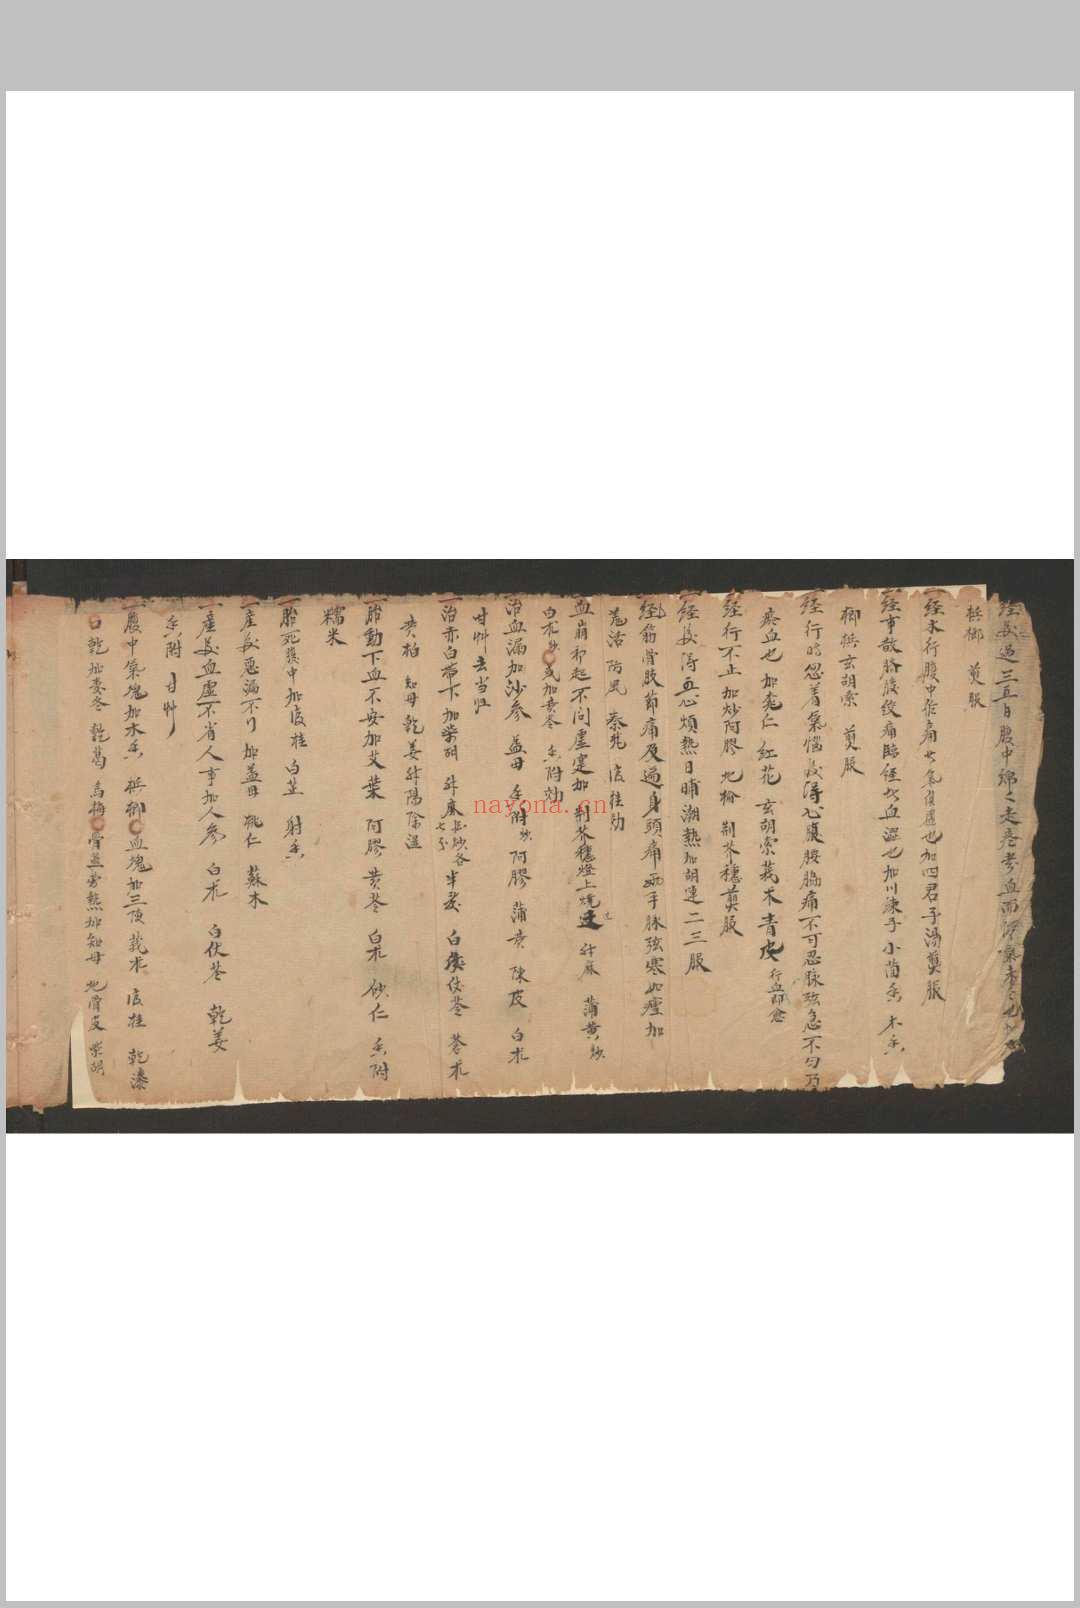 経後過三五日腹中綿々走疼者血而滞氣未
梹榔 煎服
経水行腹中作痛者氣也加四君子湯煎服
経事欲臍腹絞痛臨経者血澀也加川練子小茴香 木香
榔梹玄胡索 煎服
経行時忽着氣惱後得心腹腰脇痛不可忍脉弦急不匀乃
瘀血也加桃仁 紅花 玄胡索莪术青皮 行血即愈
経行不止加炒阿膠 地榆 荆芥穗煎服
経後潯五心煩熱日晡潮熱加胡連二三服
経筋骨肢節痛及遍身頭痛 手脉弦寒如瘧加
羗活 防風 秦艽 官桂効
血崩初起不问虛寔加荆芥穗燈上燒过 升麻 蒲黄炒
白术炒或加黄芩 香附効
治血漏加沙參 益母 香附炒 阿膠 蒲黄 陳皮 白术
甘艸去当归
治赤白帶下加柴胡 升麻 炒各七分 半夏 白茯苓 蒼术
黄柏 知母 乾姜 升陽除湿
胎動下血不安加艾葉 阿膠 黄芩 白术 砂仁 香附
糯米
胎死腹中加官桂 白芷 射香
産後惡漏不行加益母 桃仁 蘇木
産後血虛不省人事加人參 白术 白伏苓 乾姜
香附 甘艸
腹中氣塊加木香 梹榔 血塊加三陵 莪术 官桂 乾漆
口乾加麦冬 乾葛 烏梅 骨蒸勞熱加知母 地骨皮 柴胡
nayona.cn